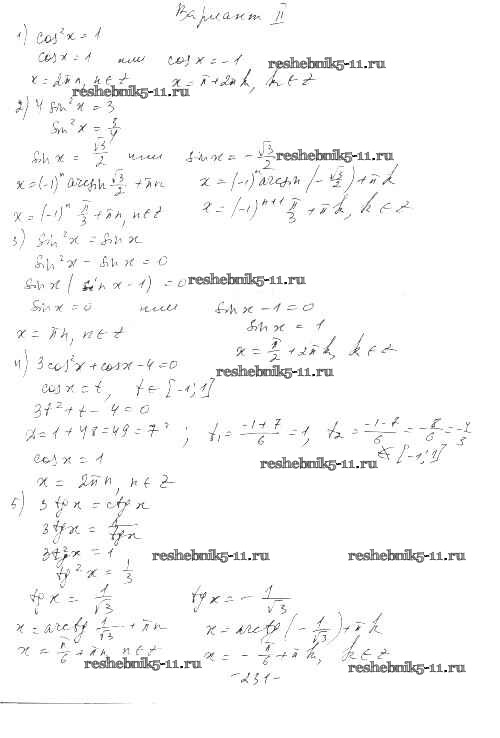 Вариант II
1) cos²x = 1
cosx = 1 или cosx = -1 reshebnik5-11.ru
x = 2πn, n∈Z x = π+2πk, k∈Z
reshebnik5-11.ru
2) 4 sin²x = 3
sin²x = 3/4
sinx = √3/2 или sinx = -√3/2 reshebnik5-11.ru
x = (-1)ⁿ arcsin √3/2 + πn x = (-1)ⁿ arcsin(-√3/2) + πk
x = (-1)ⁿ π/3 + πn, n∈Z x = (-1)ⁿ⁺¹ π/3 + πk, k∈Z
3) sin²x = sinx
sin²x - sinx = 0
sinx (sinx - 1) = 0 reshebnik5-11.ru
sinx = 0 или sinx - 1 = 0
sinx = 1
x = πn, n∈Z x = π/2 + 2πk, k∈Z
4) 3cos²x + cosx - 4 = 0 reshebnik5-11.ru
cosx = t, t∈[-1;1]
3t² + t - 4 = 0
D = 1 + 48 = 49 = 7²; t₁ = (-1+7)/6 = 1, t₂ = (-1-7)/6 = -8/6 = -4/3
∉ [-1;1]
cosx = 1 reshebnik5-11.ru
x = 2πn, n∈Z
5) 3 tgx = ctgx
3tgx = 1/tgx
3tg²x = 1 reshebnik5-11.ru reshebnik5-11.ru
tg²x = 1/3
tgx = 1/√3 tgx = -1/√3
x = arctg 1/√3 + πn x = arctg(-1/√3) + πk
x = π/6 + πn, n∈Z x = -π/6 + πk, k∈Z
reshebnik5-11.ru reshebnik5-11.ru
-231-